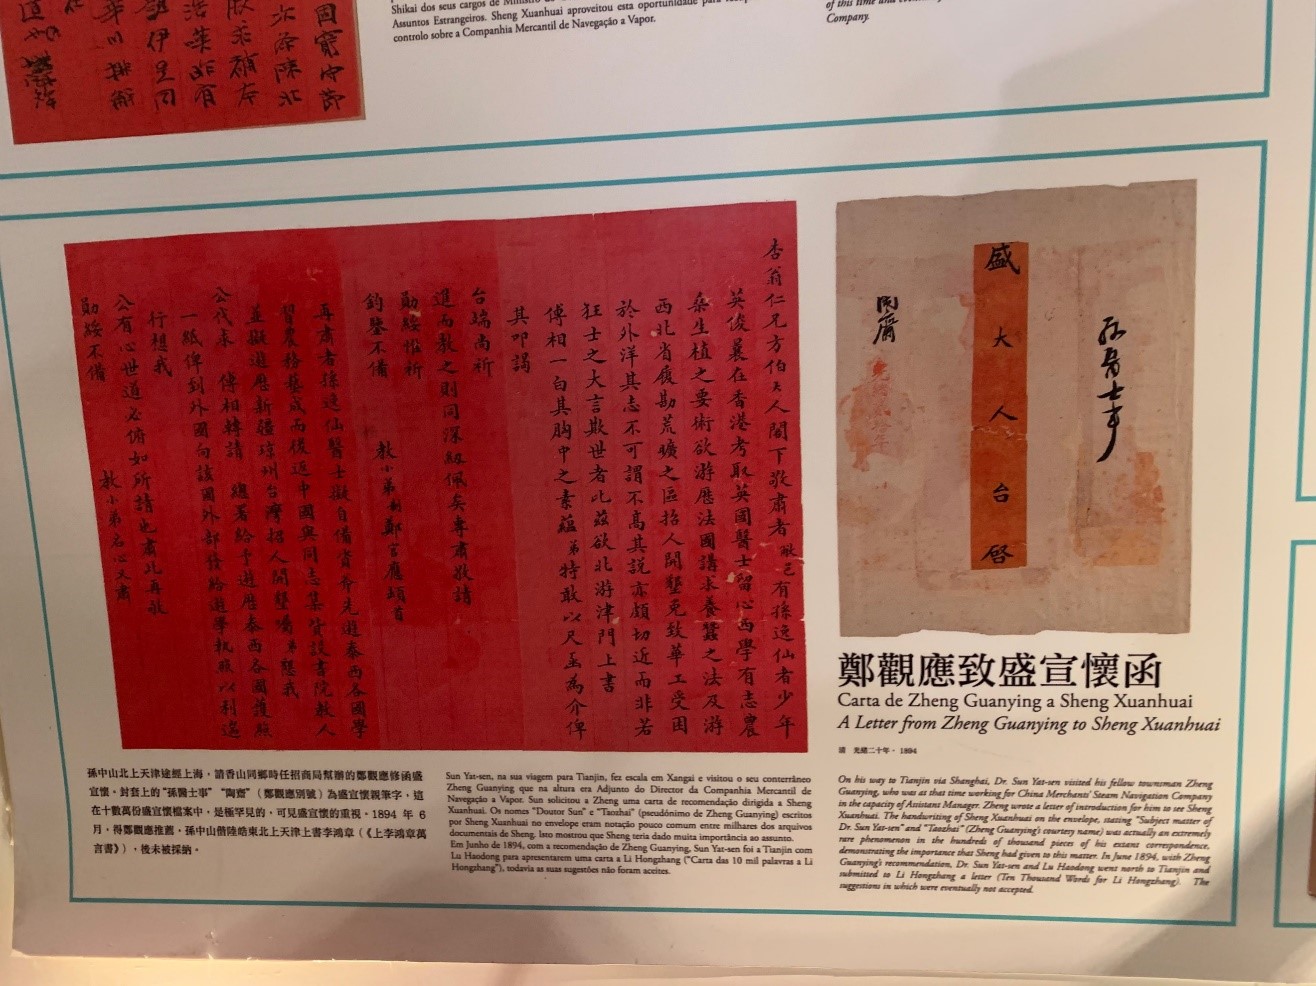 Shikai dos seus cargos de Ministro do
Assuntos Estrangeiros. Sheng Xuanhuai aproveitou esta oportunidade para
controlo sobre a Companhia Mercantil de Navegação a Vapor.
of this time and
Company.
杏翁仁兄方伯大人閣下敬肅者敝邑有孫逸仙者少年
英俊曩在香港考取英國醫士留心西學有志農
桑生植之要術欲游歷法國講求養蠶之法及游
西北省履勘荒曠之區招人開墾免致華工受困
於外洋其志不可謂不高其說亦頗切近而非若
狂士之大言欺世者比茲欲北游津門上書
傅相一白其胸中之素蘊弟特敢以尺函為介俾
其叩謁
台端尚祈
進而教之則同深紉佩矣專肅敬請
勛綏惟祈
鈞鑒不備
教小弟制鄭官應頓首
再肅者孫逸仙醫士擬自備資斧先遊泰西各國學
習農務藝成而後返中國與同志集貲設書院教人
並擬遊歷新疆瓊州台灣招人開墾囑弟懇我
公代求 傅相轉請 總署給予遊歷泰西各國護照
一紙俾到外國向該國外部發給遊學執照以利遄
行想我
公有心世道必俯如所請也肅此再敬
勛綏不備
教小弟名心又肅
孫醫士事
盛大人台啓
陶齋
鄭觀應致盛宣懷函
Carta de Zheng Guanying a Sheng Xuanhuai
A Letter from Zheng Guanying to Sheng Xuanhuai
清 光緒二十年，1894
孫中山北上天津途經上海，請香山同鄉時任招商局幫辦的鄭觀應修函盛
宣懷。封套上的“孫醫士事” “陶齋”（鄭觀應別號）為盛宣懷親筆字，這
在十數萬份盛宣懷檔案中，是極罕見的，可見盛宣懷的重視。1894 年 6
月，得鄭觀應推薦，孫中山偕陸皓東北上天津上書李鴻章（《上李鴻章萬
言書》），後未被採納。
Sun Yat-sen, na sua viagem para Tianjin, fez escala em Xangai e visitou o seu conterrâneo
Zheng Guanying que na altura era Adjunto do Director da Companhia Mercantil de
Navegação a Vapor. Sun solicitou a Zheng uma carta de recomendação dirigida a Sheng
Xuanhuai. Os nomes "Doutor Sun" e "Taozhai" (pseudónimo de Zheng Guanying) escritos
por Sheng Xuanhuai no envelope eram notação pouco comum entre milhares dos arquivos
documentais de Sheng. Isto mostrou que Sheng teria dado muita importância ao assunto.
Em Junho de 1894, com a recomendação de Zheng Guanying, Sun Yat-sen foi a Tianjin com
Lu Haodong para apresentarem uma carta a Li Hongzhang ("Carta das 10 mil palavras a Li
Hongzhang"), todavia as suas sugestões não foram aceites.
On his way to Tianjin via Shanghai, Dr. Sun Yat-sen visited his fellow townsman Zheng
Guanying, who was at that time working for China Merchants' Steam Navigation Company
in the capacity of Assistant Manager. Zheng wrote a letter of introduction for him to see Sheng
Xuanhuai. The handwriting of Sheng Xuanhuai on the envelope, stating "Subject matter of
Dr. Sun Yat-sen" and "Taozhai" (Zheng Guanying's courtesy name) was actually an extremely
rare phenomenon in the hundreds of thousand pieces of his extant correspondence,
demonstrating the importance that Sheng had given to this matter. In June 1894, with Zheng
Guanying's recommendation, Dr. Sun Yat-sen and Lu Haodong went north to Tianjin and
submitted to Li Hongzhang a letter (Ten Thousand Words for Li Hongzhang). The
suggestions in which were eventually not accepted.